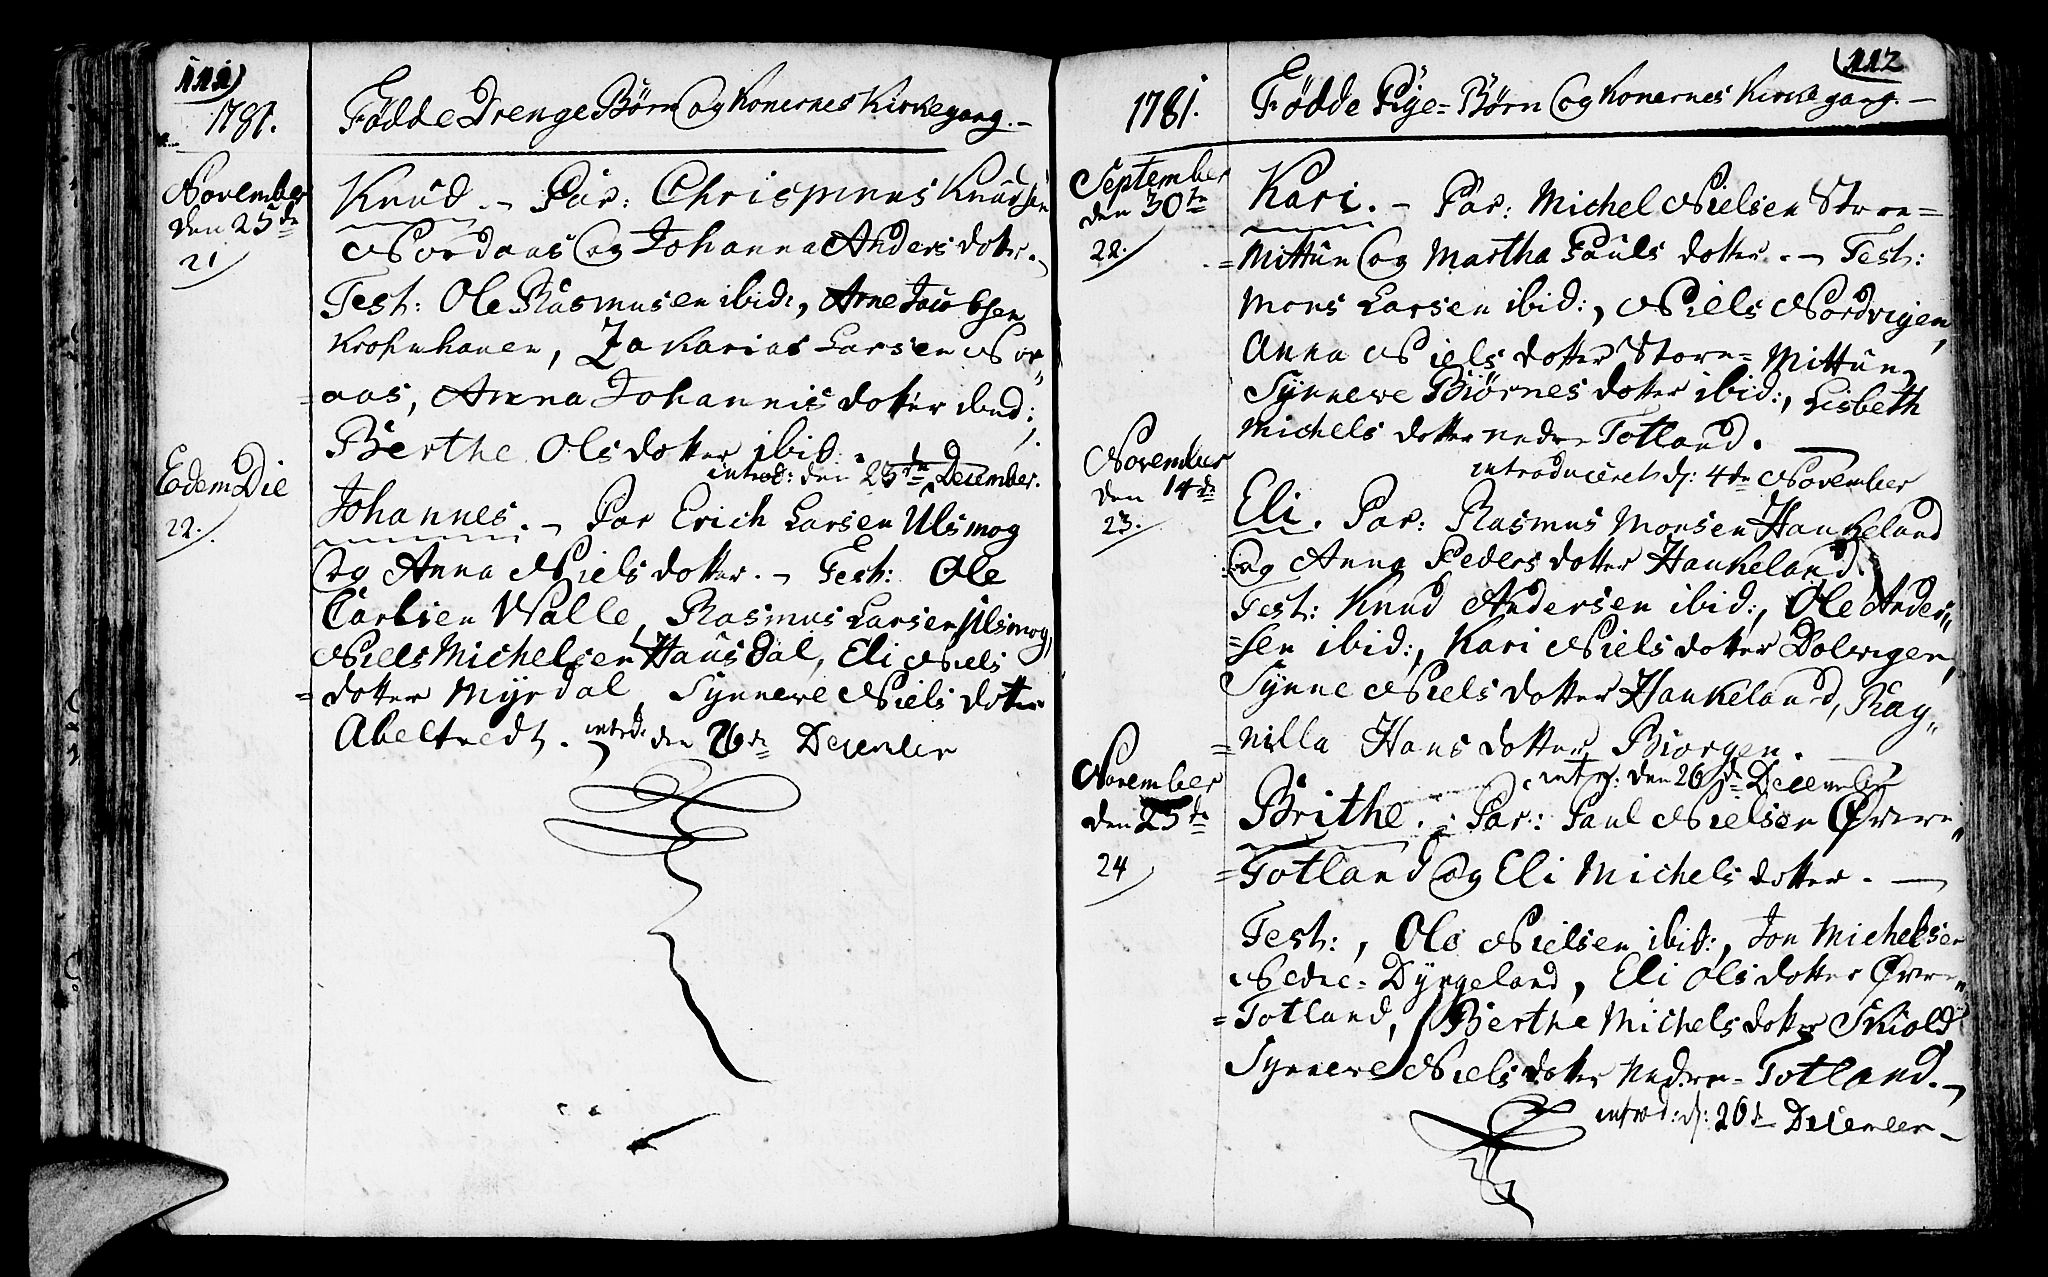 111)
1781.
Födde Drenge Börn og Konernes Kirkegang. –
November
den 25de
21
Knud. – Par: Chrispinus Knudsen
Nordaas og Johanna Anders dotter. –
Test: Ole Rasmusen ibid:, Arne Jacobsen
Krohnhauen, Zakarias Larsen Nor„
=aas, Anna Johannis dotter ibid:,
Berthe Ols dotter ibid.
introd: den 23de December.
Eodem Die
22.
Johannes. – Par Erich Larsen Ulsmog
og Anna Niels dotter. – Test: Ole
Carlsen Walle, Rasmus Larsen Ulsmog,
Niels Michelsen Hausdal, Eli Niels
=dotter Myrdal Synnewe Niels dotter
Abeltredt. introd: den 26de December
(112
1781.
Födde Pige=Börn og Konernes Kirkegang. –
September
den 30te
22.
Kari. – Par: Michel Nielsen Store=
=Mittun og Martha Pauls dotter. – Test:
Mons Larsen ibid:, Niels Nordvigen,
Anna Niels dotter Store=Mittun,
Synnewe Biörnes dotter ibid:, Lisbeth
Michels dotter nedre Totland.
introduceret d: 4de November
November
den 14de
23.
Eli. Par: Rasmus Monsen Haukeland
og Anna Peders dotter Haukeland.
Test: Knud Andersen ibid:, Ole Ander„
=sen ibid:, Kari Niels dotter Dolvigen,
Synne Niels dotter Haukeland, Rag„
=nilla Hans dotter Biorgen.
introd: den 26de December
November
den 25de
24
Brithe. – Par: Paul Nielsen Øvre„
=Totland og Eli Michels dotter. –
Test:, Ole Nielsen ibid:, Jon Michelsen
Nedre=Dyngeland, Eli Ols dotter Øvre„
=Totland, Berthe Michels dotter Skiold
Synnewe Niels dotter Nedre=Totland. –
introd: d: 26de December –